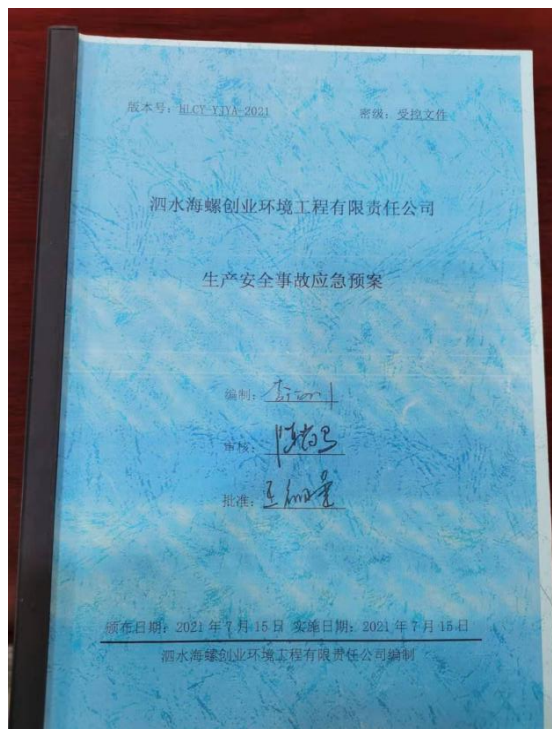 版本号：HLCY-YJYA-2021 密级：受控文件
泗水海螺创业环境工程有限责任公司
生产安全事故应急预案
编制：
审核：
批准：
颁布日期：2021 年 7 月 15 日 实施日期：2021 年 7 月 15 日
泗水海螺创业环境工程有限责任公司编制